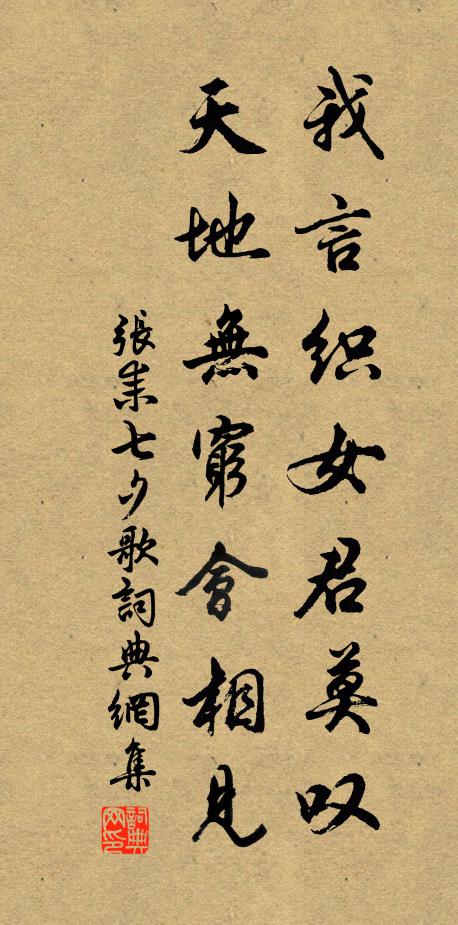 我言织女君莫叹
天地無窮會相見
張耒七夕歌詞典網集
詞典网印